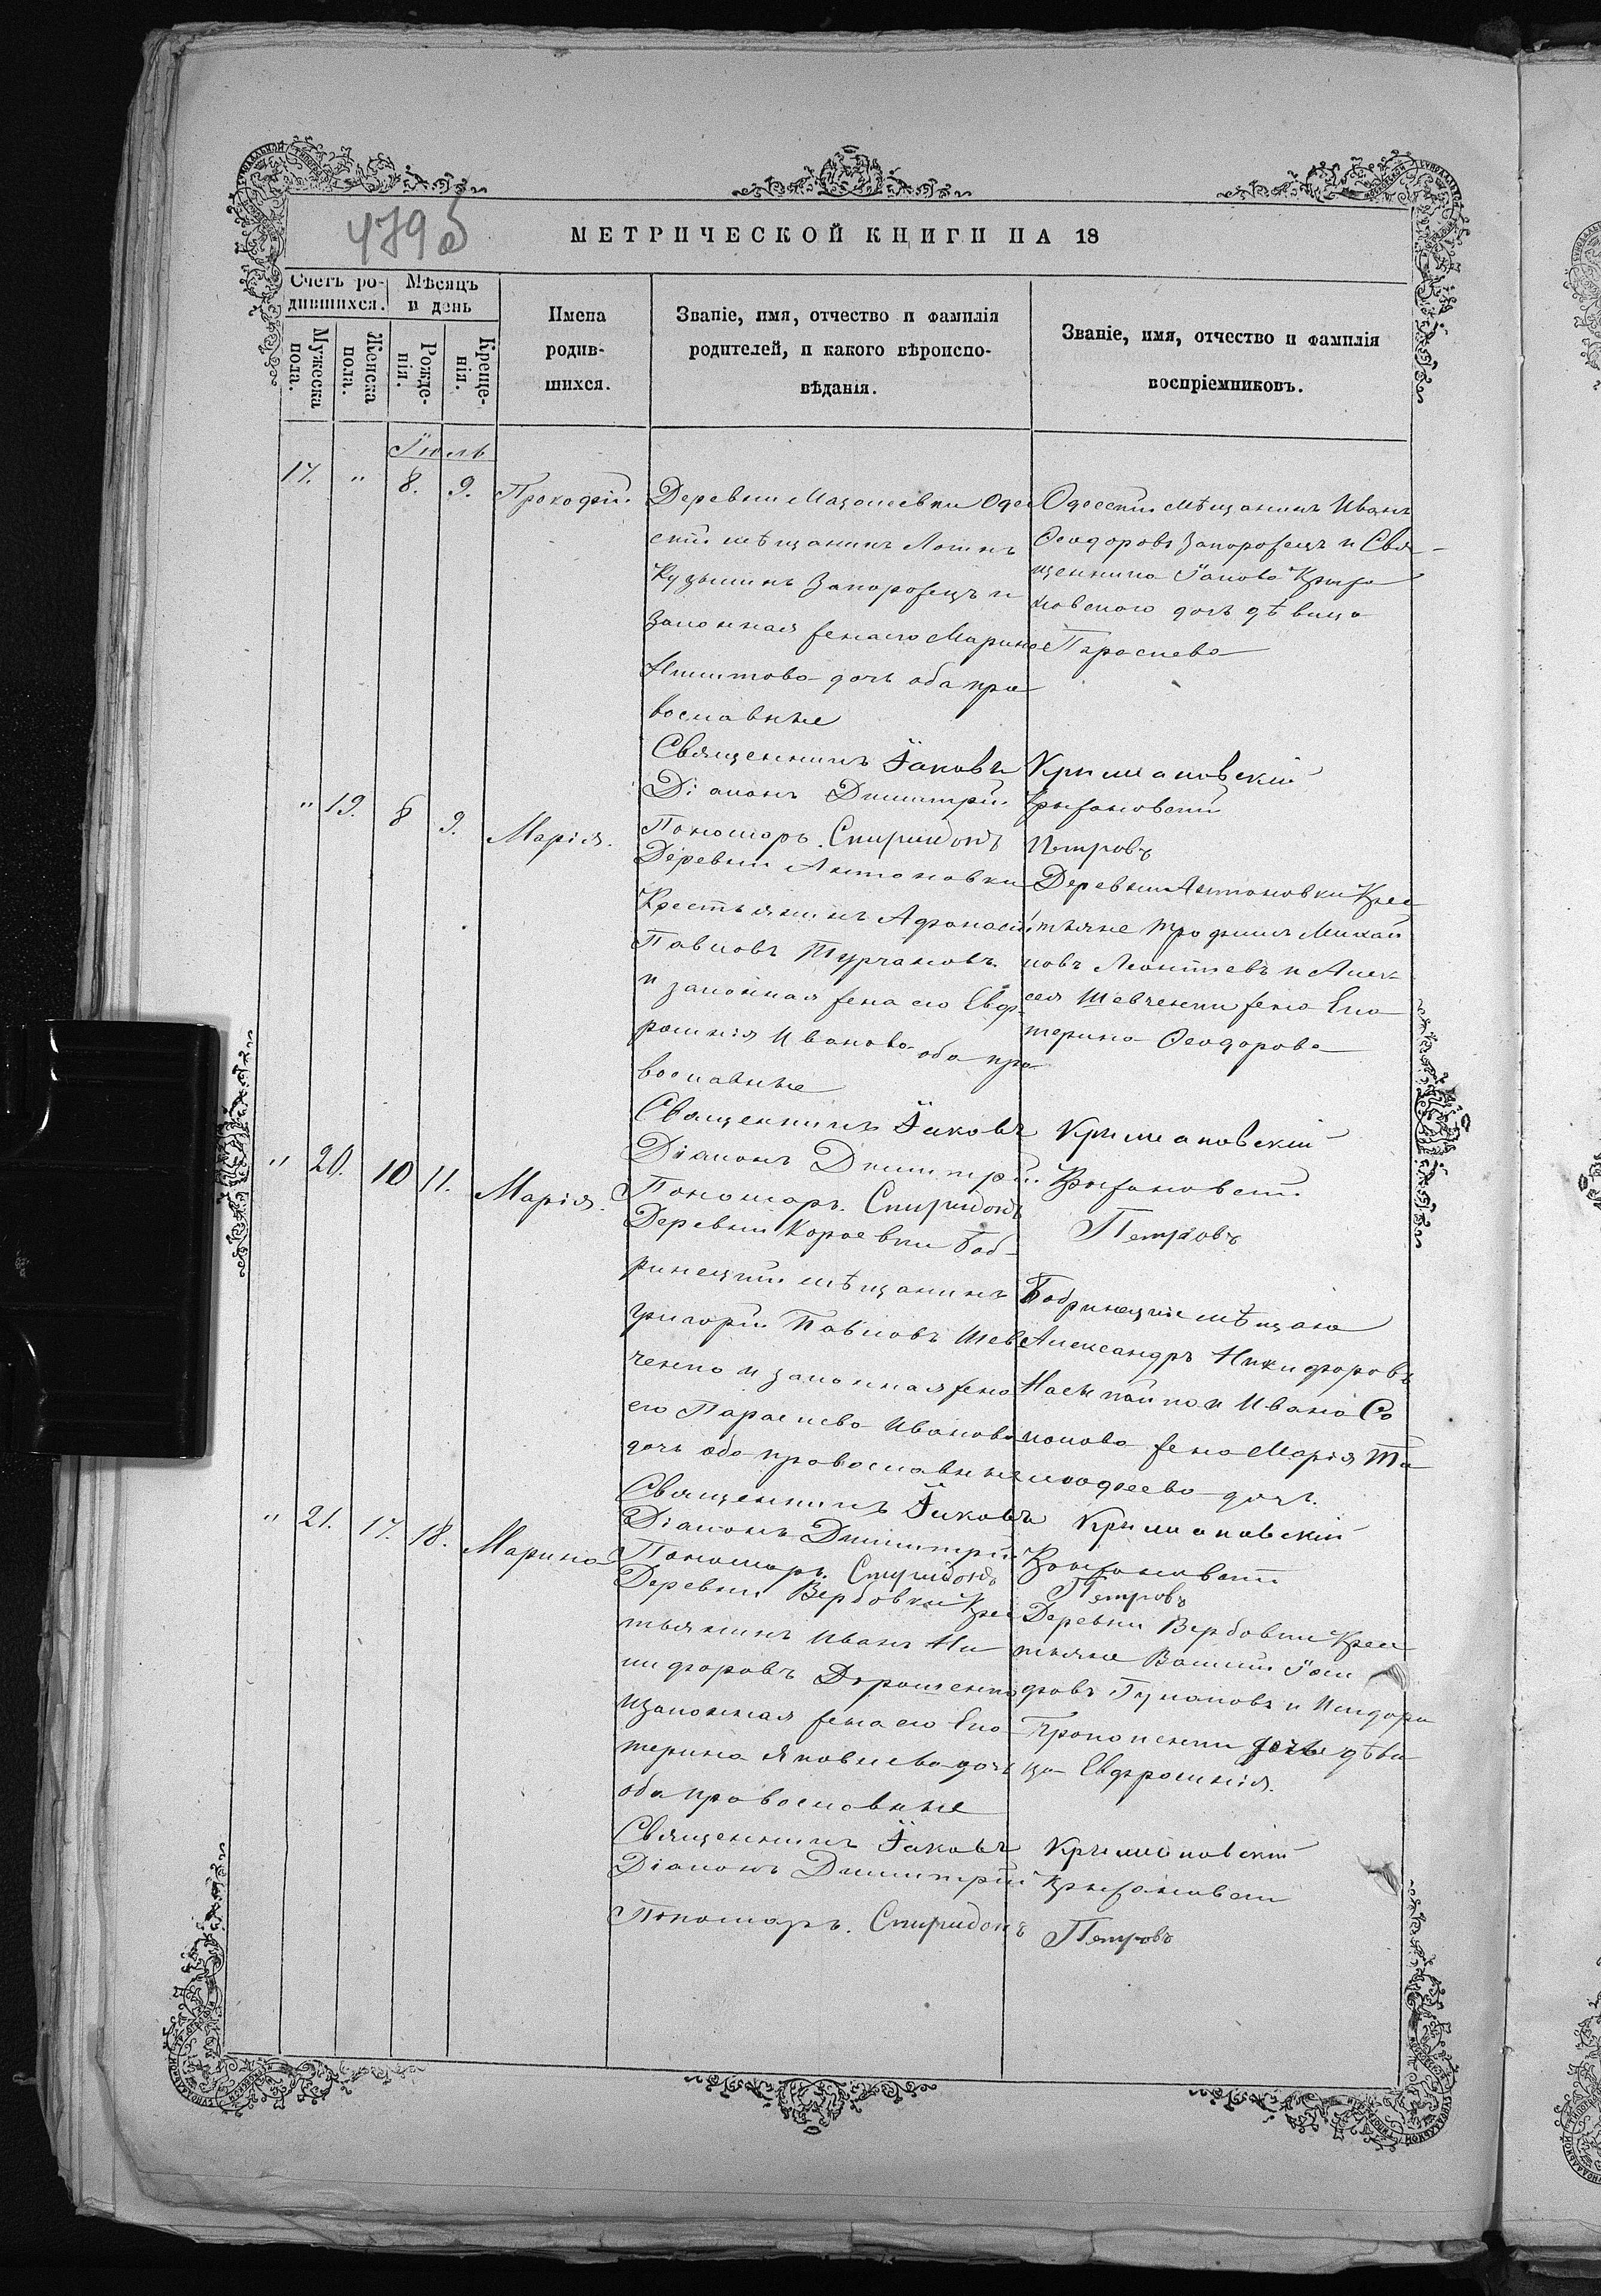 479 об
МЕТРИЧЕСКОЙ КНИГИ НА 18
Счетъ ро-
дившихся.
Мѣсяцъ
и день
Мужеска
пола.
Женска
пола.
Рожде-
нія.
Креще-
нія.
Имена
родив-
шихся.
Званіе, имя, отчество и фамилія
родителей, и какого вѣроиспо-
вѣданія.
Званіе, имя, отчество и фамилія
воспріемниковъ.
Іюль
17. " 8. 9. Прокофій.
Деревни Одес
скій мѣщанинъ
Кузьминъ Запорожецъ и
законная жена его Марина
дочь оба пра
вославные
Одесскій мѣщанинъ Иванъ
Феодоровъ Запорожецъ и Свя-
щенника Іакова Крыжа
новскаго дочь дѣвица
Параскева
Священникъ Іаковъ Крыжановскій
Діаконъ Димитрій Крыжановскій
Пономарь Спиридонъ Петровъ
" 19. 8 9. Марія.
Деревни Антоновки
Крестьянинъ Афанасій
Павловъ Турчановъ
и законная жена его Евф
росинія Иванова оба пра
вославные
Деревни Антоновки Крес
тьяне Трофимъ Михай
ловъ Леонтьевъ и Алек-
сея Шевченки жена Ека
терина Феодорова
Священникъ Іаковъ Крыжановскій
Діаконъ Димитрій Крыжановскій
Пономарь Спиридонъ Петровъ
" 20. 10 11. Марія.
Деревни Караевки Боб-
ринецкій мѣщанинъ
Григорій Павловъ Шев
ченко и законная жена
его Параскева Иванова
дочь оба православные
Бобринецкіе мѣщане
Александръ Никифоровъ
и Ивана Со
колова жена Марія Ти
мофеева дочь.
Священникъ Іаковъ Крыжановскій
Діаконъ Димитрій Крыжановскій
Пономарь Спиридонъ Петровъ
" 21. 17. 18. Марина
Деревни Вербовки Крес
тьянинъ Иванъ Ни
кифоровъ Дорошенко
и законная жена его Ека
терина Яковлева дочь
оба православные
Деревни Вербовки Крес
тьяне Василій Іоси
фовъ и Исидора
Прокопенки дочь дѣви
ца Евфросинія.
Священникъ Іаковъ Крыжановскій
Діаконъ Димитрій Крыжановскій
Пономарь Спиридонъ Петровъ